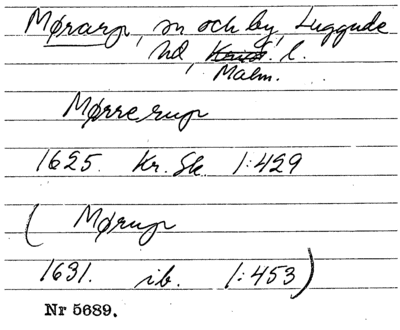 Mørarp, sn och by, Luggude
hd, Krist. l.
Malm.
Mørrerup
1625. Kr. Sk. 1:429
( Mørup
1631. ib. 1:453)
Nr 5689.